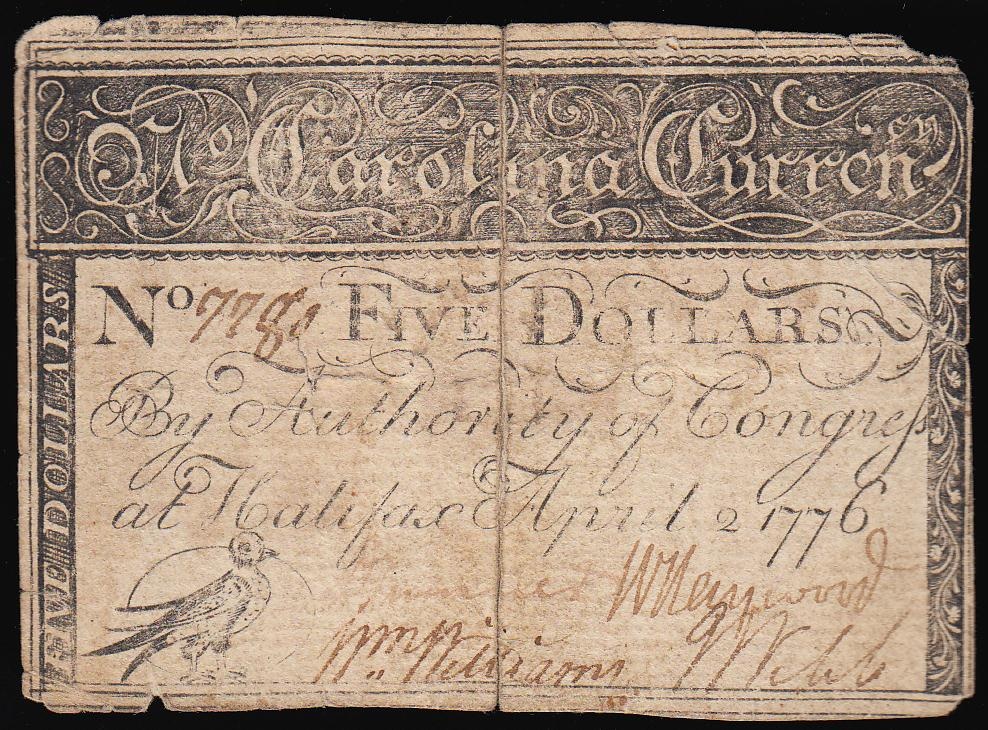 No Carolina Currency
FIVE DOLLARS
No 778 FIVE DOLLARS
By Authority of Congress
at Halifax April 2 1776
W Heywood
Wm. Williams J Webb